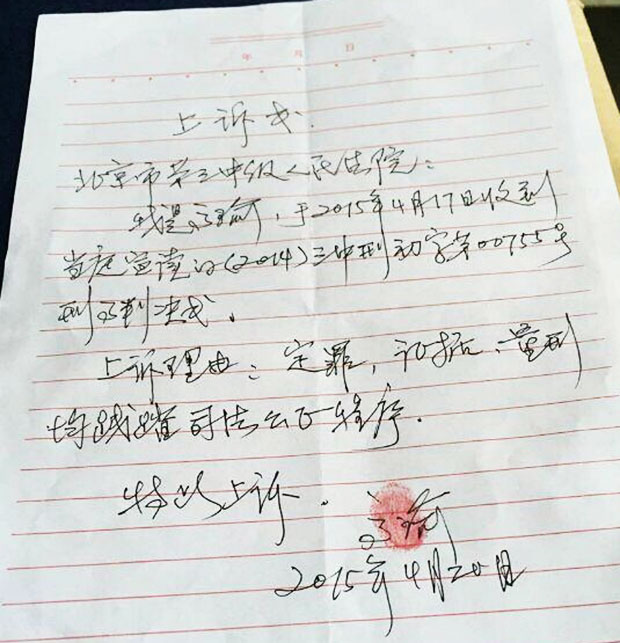 年 月 日
上诉书.
北京市第三中级人民法院:
我是高瑜,于2015年4月17日收到
当庭宣读的(2014)三中刑初字第00755号
刑事判决书.
上诉理由:定罪,证据、量刑
均践踏司法公正程序.
特此上诉.
高瑜
2015年4月20日